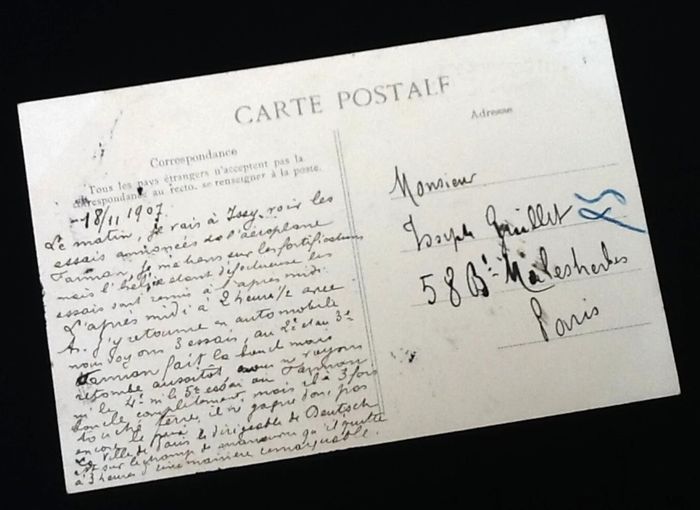 CARTE POSTALE
Correspondance
Tous les pays étrangers n'acceptent pas la
correspondance au recto, se renseigner à la poste.
18/11 1907.
Le matin, je vais à Issy voir les
essais annoncés de l'aéroplane
Farman, je me tiens sur les fortifications
mais l'hélice étant défectueuse les
essais sont remis à l'après midi.
L'après midi à 2 heures ½ avec
A. j'y retourne en automobile
nous voyons 3 essais, au 2e et au 3e
Farman fait la boucle mais
retombe aussitôt nous ne voyons
ni le 4e ni le 5e essai où Farman
boucle complètement, mais il a 3 fois
touché terre, il ne gagne donc pas
encore le prix
La Ville de Paris le dirigeable de Deutsch
est sur le champ de manoeuvres qu'il quitte
à 3 heures d'une manière remarquable.
Adresse
Monsieur
Joseph Guillet
58 Bd Malesherbes
Paris